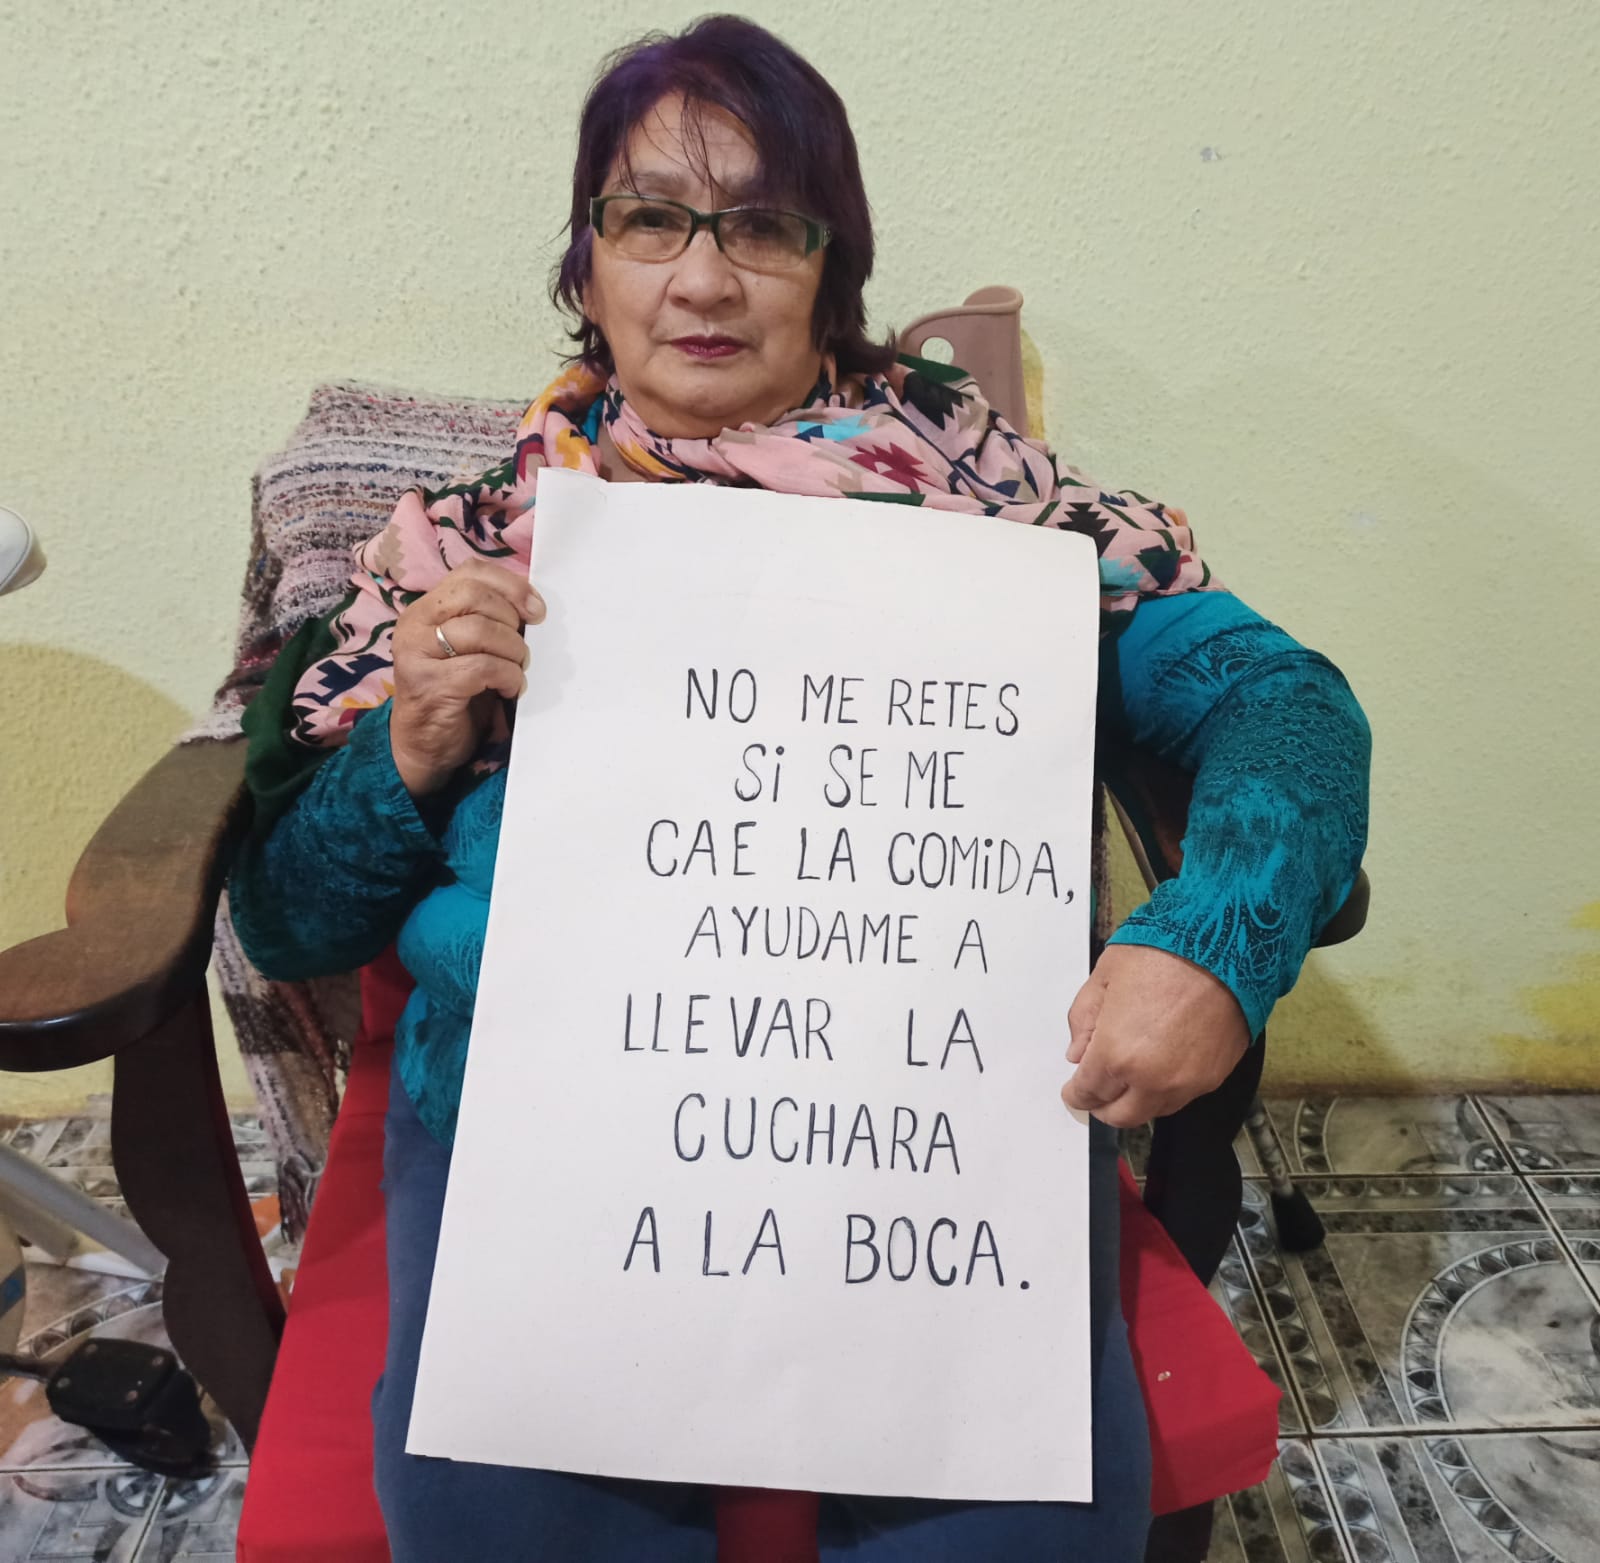 NO ME RETES
Si SE ME
CAE LA COMiDA,
AYUDAME A
LLEVAR LA
CUCHARA
A LA BOCA.